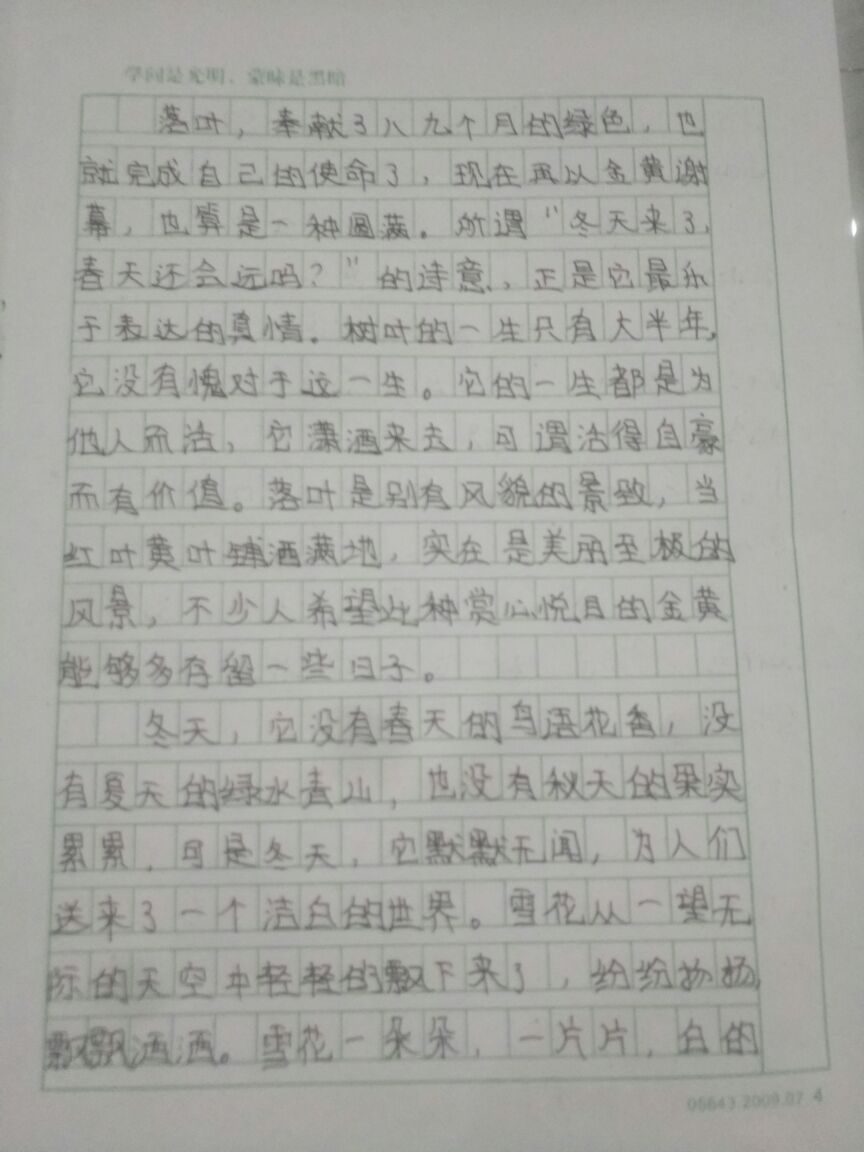 学问是光明，蒙昧是黑暗
落叶，奉献了八九个月的绿色，也
就完成自己的使命了，现在再以金黄谢
幕，也算是一种圆满。所谓“冬天来了，
春天还会远吗？”的诗意，正是它最乐
于表达的真情。树叶的一生只有大半年，
它没有愧对于这一生。它的一生都是为
他人而活，它潇洒来去，可谓活得自豪
而有价值。落叶是别有风貌的景致，当
红叶黄叶铺洒满地，实在是美丽至极的
风景，不少人希望这种赏心悦目的金黄
能够多存留一些日子。
冬天，它没有春天的鸟语花香，没
有夏天的绿水青山，也没有秋天的果实
累累，可是冬天，它默默无闻，为人们
送来了一个洁白的世界。雪花从一望无
际的天空中轻轻的飘下来了，纷纷扬扬，
飘飘洒洒。雪花一朵朵，一片片，白的
05643 2009.07 4